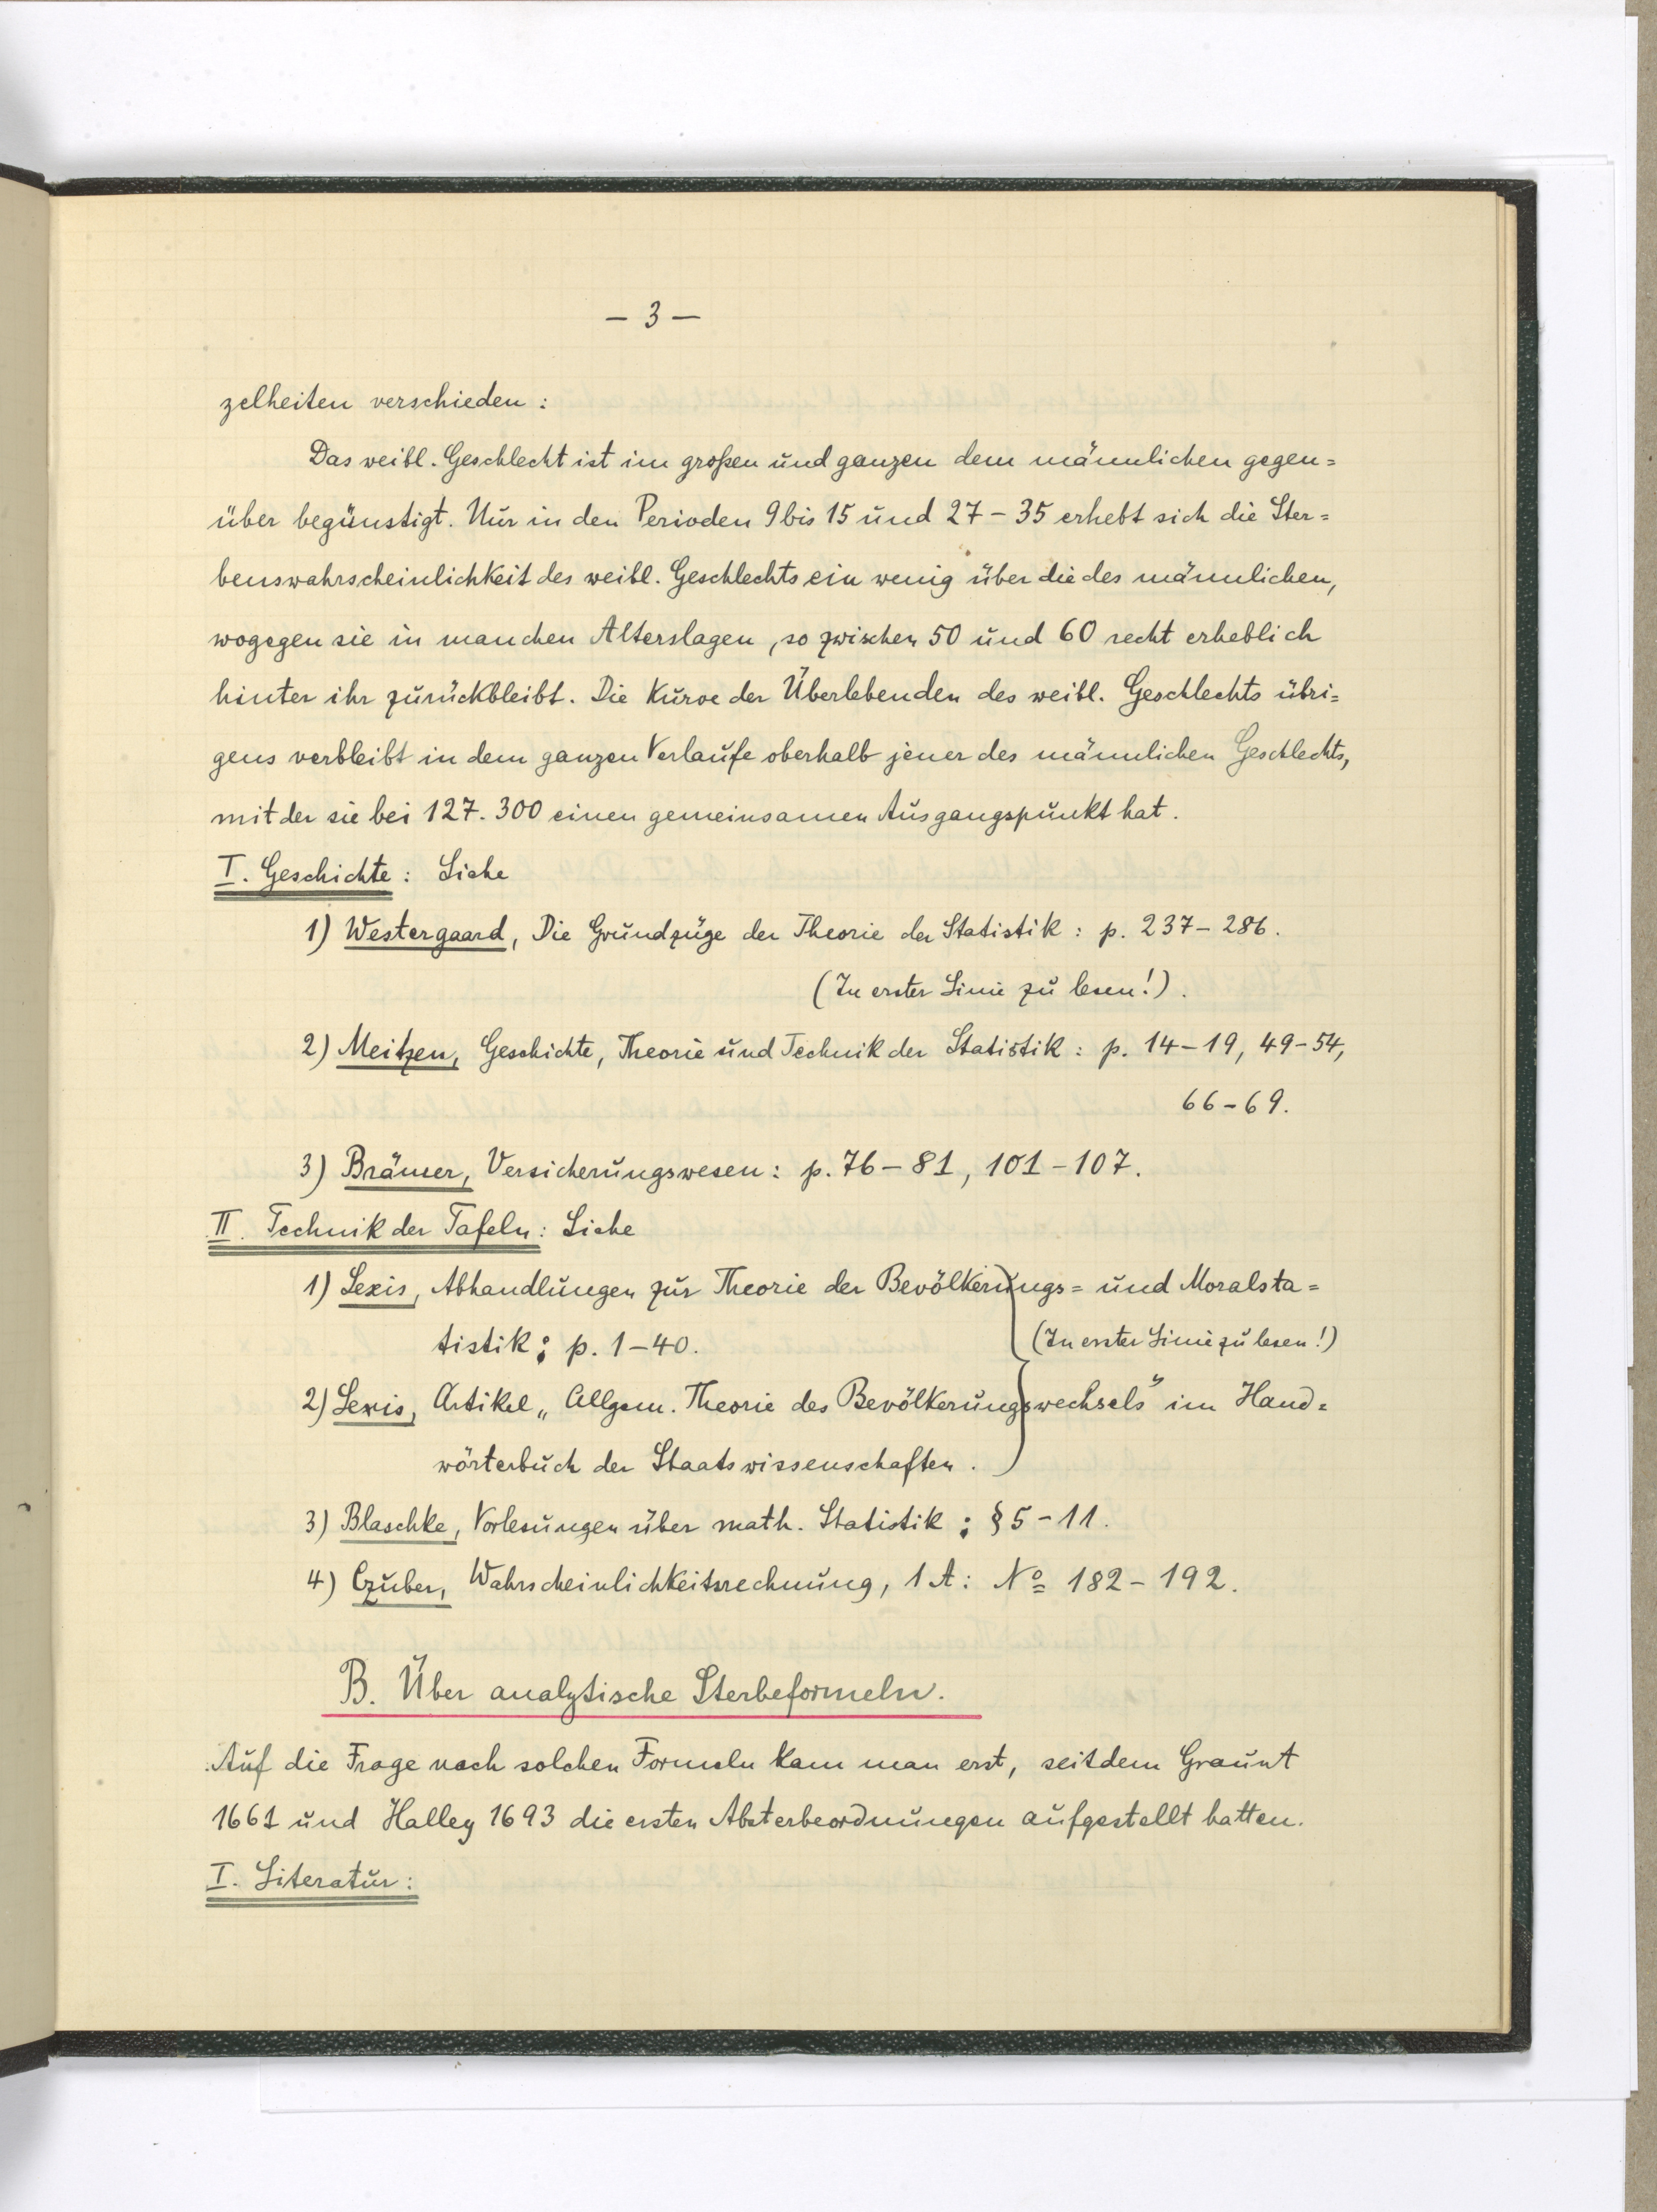 – 3 –
zelheiten verschieden :
Das weibl. Geschlecht ist im großen und ganzen dem männlichen gegen=
über begünstigt. Nur in den Perioden 9 bis 15 und 27 – 35 erhebt sich die Ster=
benswahrscheinlichkeit des weibl. Geschlechts ein wenig über die des männlichen,
wogegen sie in manchen Alterslagen, so zwischen 50 und 60 recht erheblich
hinter ihr zurückbleibt. Die Kurve der Überlebenden des weibl. Geschlechts übri=
gens verbleibt in dem ganzen Verlaufe oberhalb jener des männlichen Geschlechts,
mit der sie bei 127.300 einen gemeinsamen Ausgangspunkt hat.
I. Geschichte : Siehe
1) Westergaard, Die Grundzüge der Theorie der Statistik : p. 237 – 286.
(In erster Linie zu lesen!).
2) Meitzen, Geschichte, Theorie und Technik der Statistik : p. 14 – 19, 49 – 54,
66 – 69.
3) Brämer, Versicherungswesen : p. 76 – 81, 101 – 107.
II. Technik der Tafeln : Siehe
1) Lexis, Abhandlungen zur Theorie der Bevölkerungs= und Moralsta=
tistik ; p. 1 – 40.
(In erster Linie zu lesen!)
2) Lexis, Artikel „Allgem. Theorie des Bevölkerungswechsels" im Hand=
wörterbuch der Staatswissenschaften.
3) Blaschke, Vorlesungen über math. Statistik ; § 5 – 11.
4) Czuber, Wahrscheinlichkeitsrechnung, 1 A : Nº 182 – 192.
B. Über analytische Sterbeformeln.
Auf die Frage nach solchen Formeln kam man erst, seitdem Graunt
1661 und Halley 1693 die ersten Absterbeordnungen aufgestellt hatten.
I. Literatur :